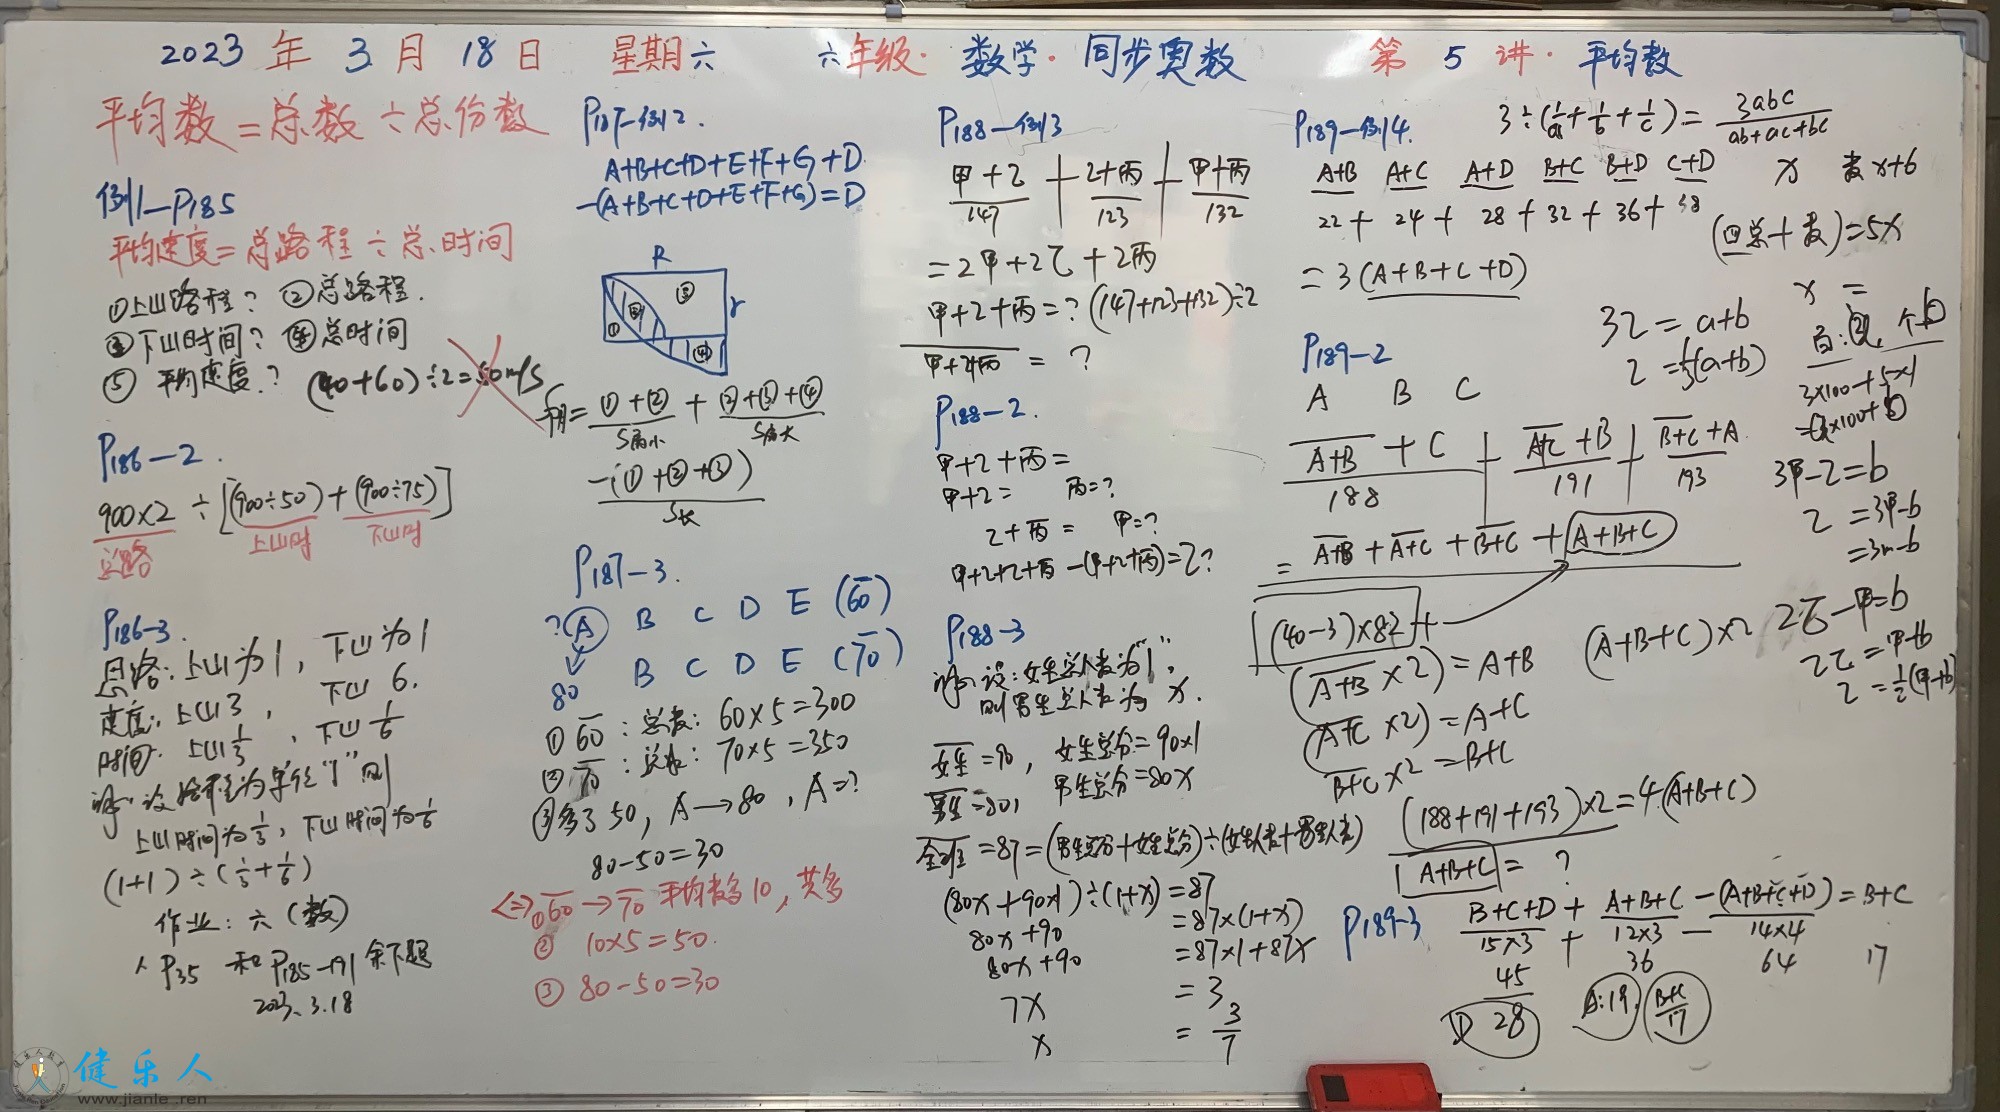 2023 年 3 月 18 日 星期六 六年级· 数学· 同步奥数 第 5 讲· 平均数
平均数=总数÷总份数
例1-P185
平均速度=总路程÷总时间
①上山路程? ②总路程.
③下山时间? ④总时间
⑤ 平均速度? (40+60)÷2=50m/s
P186-2.
900×2÷[(900÷50)+(900÷75)]
总路 上山时 下山时
P186-3.
思路:上山为1, 下山为1
速度:上山3, 下山 6.
时间:上山1/3, 下山1/6
设路程为单位"1"则
上山时间为1/3, 下山时间为1/6
(1+1)÷(1/3+1/6)
作业:六(数)
P35 和P185-191 余下题
2023.3.18
P187-例2.
A+B+C+D+E+F+G+D
-(A+B+C+D+E+F+G)=D
R
① ② ③ r
④
S阴=①+② + ②+③+④
S扇小 S扇大
-(①+②+③)
S长
P187-3.
?A B C D E (60)
B C D E (70)
80
①60:总数:60×5=300
②70:总数:70×5=350
③多了50, A→80, A=?
80-50=30
<=>①60→70 平均数多10, 共多
② 10×5=50.
③ 80-50=30
P188-例3
甲+乙 + 乙+丙 + 甲+丙
147 123 132
=2甲+2乙+2丙
甲+乙+丙=?(147+123+132)÷2
甲+乙+丙 = ?
P188-2.
甲+乙+丙=
甲+乙= 丙=?
乙+丙= 甲=?
甲+乙+乙+丙-(甲+乙+丙)=乙?
P188-3
设:女生总人数为"1",
则男生总人数为 x.
女生=90, 女生总分=90×1
男生=80, 男生总分=80x
全班=87=(男生总分+女生总分)÷(女生人数+男生人数)
(80x+90×1)÷(1+x)=87
80x+90 =87×(1+x)
80x+90 =87×1+87x
7x = 3
x = 3/7
P189-例4.
3÷(1/a+1/b+1/c)=3abc/(ab+ac+bc)
A+B A+C A+D B+C B+D C+D
22+ 24+ 28+32+36+38
=3(A+B+C+D)
x 数x+6
(四总+数)=5x
x =
P189-2
A B C
A+B + C + A+C + B + B+C + A
188 191 193
= A+B + A+C + B+C + A+B+C
(40-3)×82 +
(A+B×2)=A+B (A+B+C)×2
(A+C×2)=A+C
B+C×2=B+C
(188+191+193)×2=4(A+B+C)
A+B+C = ?
3乙=a+b
乙=1/3(a+b)
3×100+5×1
3甲-乙=b
乙=3甲-b
=3m-b
2乙-甲=b
2乙=甲+b
乙=1/2(甲+b)
P189-3
B+C+D + A+B+C -(A+B+C+D)=B+C
15×3 + 12×3 - 14×4
45 36 64 17
D 28 A:19 B+C 17
健乐人
www.jianle.ren